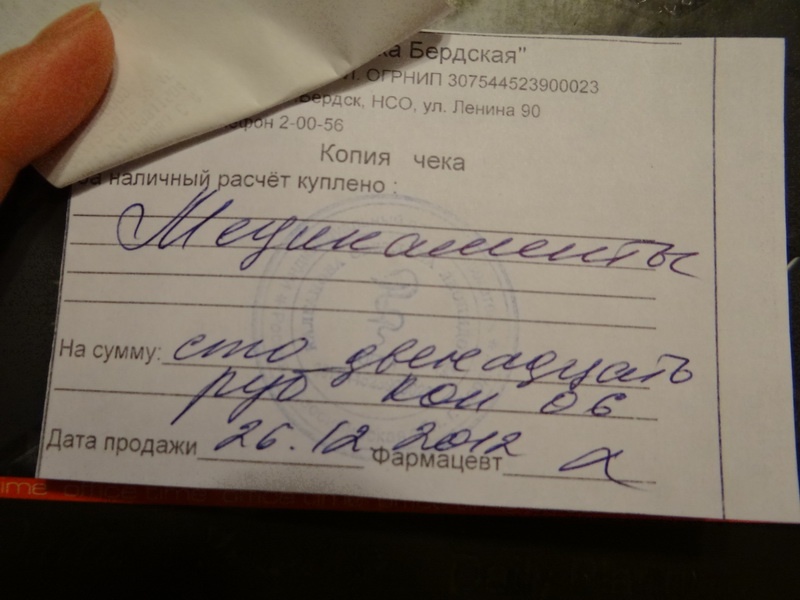 ка Бердская"
ОГРНИП 307544523900023
Бердск, НСО, ул. Ленина 90
фон 2-00-56
Копия чека
за наличный расчёт куплено :
Медикаменты
На сумму: сто двенадцать
руб коп 06
Дата продажи 26.12.2012 Фармацевт